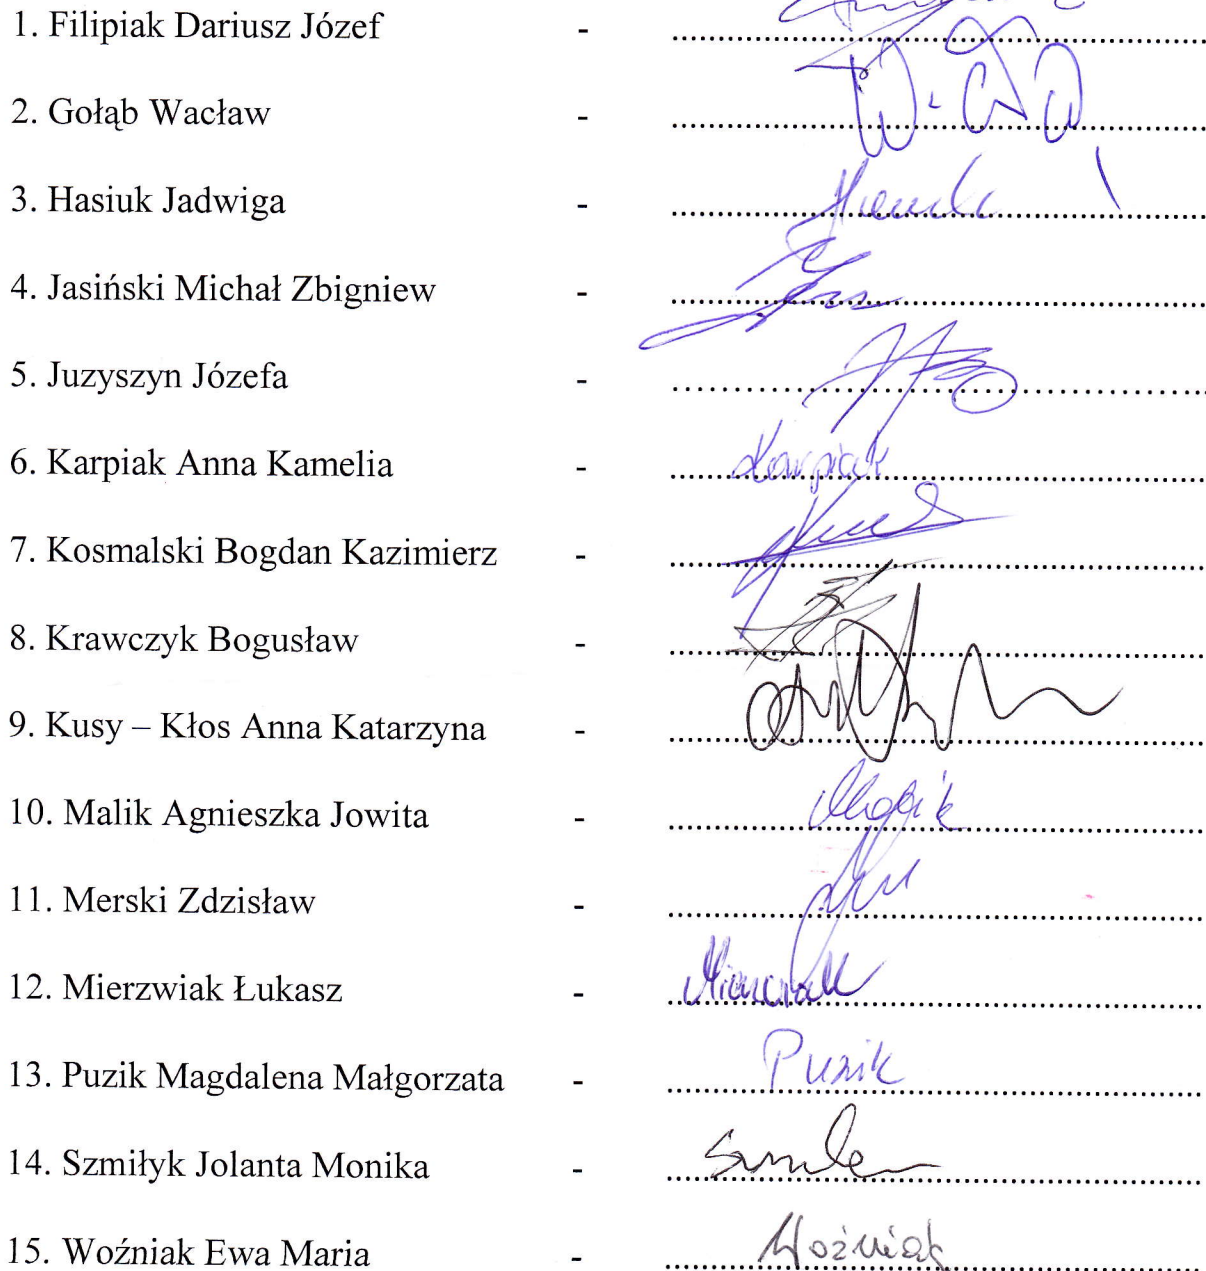 1. Filipiak Dariusz Józef - ........................................
2. Gołąb Wacław - ........................................
3. Hasiuk Jadwiga - ........................................
4. Jasiński Michał Zbigniew - ........................................
5. Juzyszyn Józefa - ........................................
6. Karpiak Anna Kamelia - Karpiak
7. Kosmalski Bogdan Kazimierz - ........................................
8. Krawczyk Bogusław - ........................................
9. Kusy – Kłos Anna Katarzyna - ........................................
10. Malik Agnieszka Jowita - Malik
11. Merski Zdzisław - ........................................
12. Mierzwiak Łukasz - Mierzwiak
13. Puzik Magdalena Małgorzata - Puzik
14. Szmiłyk Jolanta Monika - ........................................
15. Woźniak Ewa Maria - Woźniak